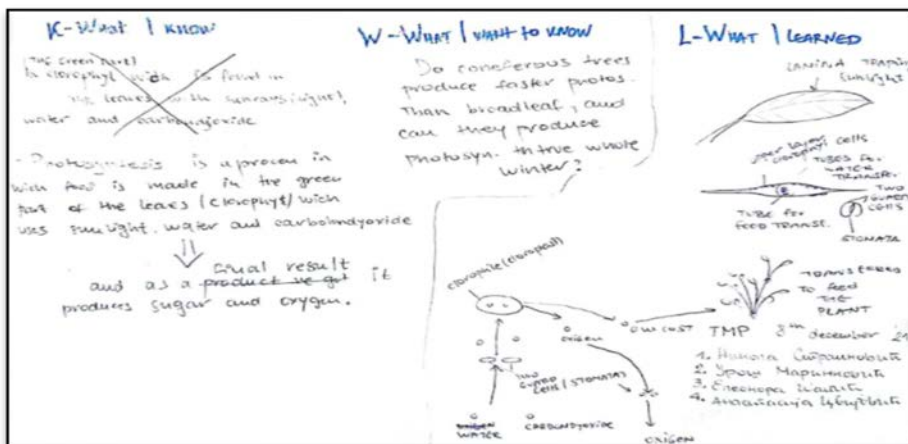 K-WHAT I KNOW
(THE GREEN PART)
is found in
the leaves with
water and carbondyoxide
- Photosyntesis is a proces in
wich food is made in the green
part of the leaves (clorophyt) wich
uses sunlight, water and carboindyoxide
final result
and as a product we got it
produces sugar and oxygen.
W-WHAT I WANT TO KNOW
Do coneferous trees
produce faster photos.
Than broadleaf, and
can they produce
photosyn. the whole
winter?
clorophile (cloroplast)
ORIGEN
GLUCOST
TWO
GUARD
CELLS (STOMATA)
WATER
CARBONDYOXIDE
OXIGEN
L-WHAT I LEARNED
LAMINA TRAPING
sunlight
upper layer, cells
TUBES FOR
WATER
TRANSFER
TWO
GUARD
CELLS
TUBE FOR
FEED TRANSF.
STOMATA
TRANSFERED
TO FEED
THE
PLANT
TMP 8th december '21
1. Никола
2. Урош Маринковић
3. Елеонора
4. Анастасија Цвијовић